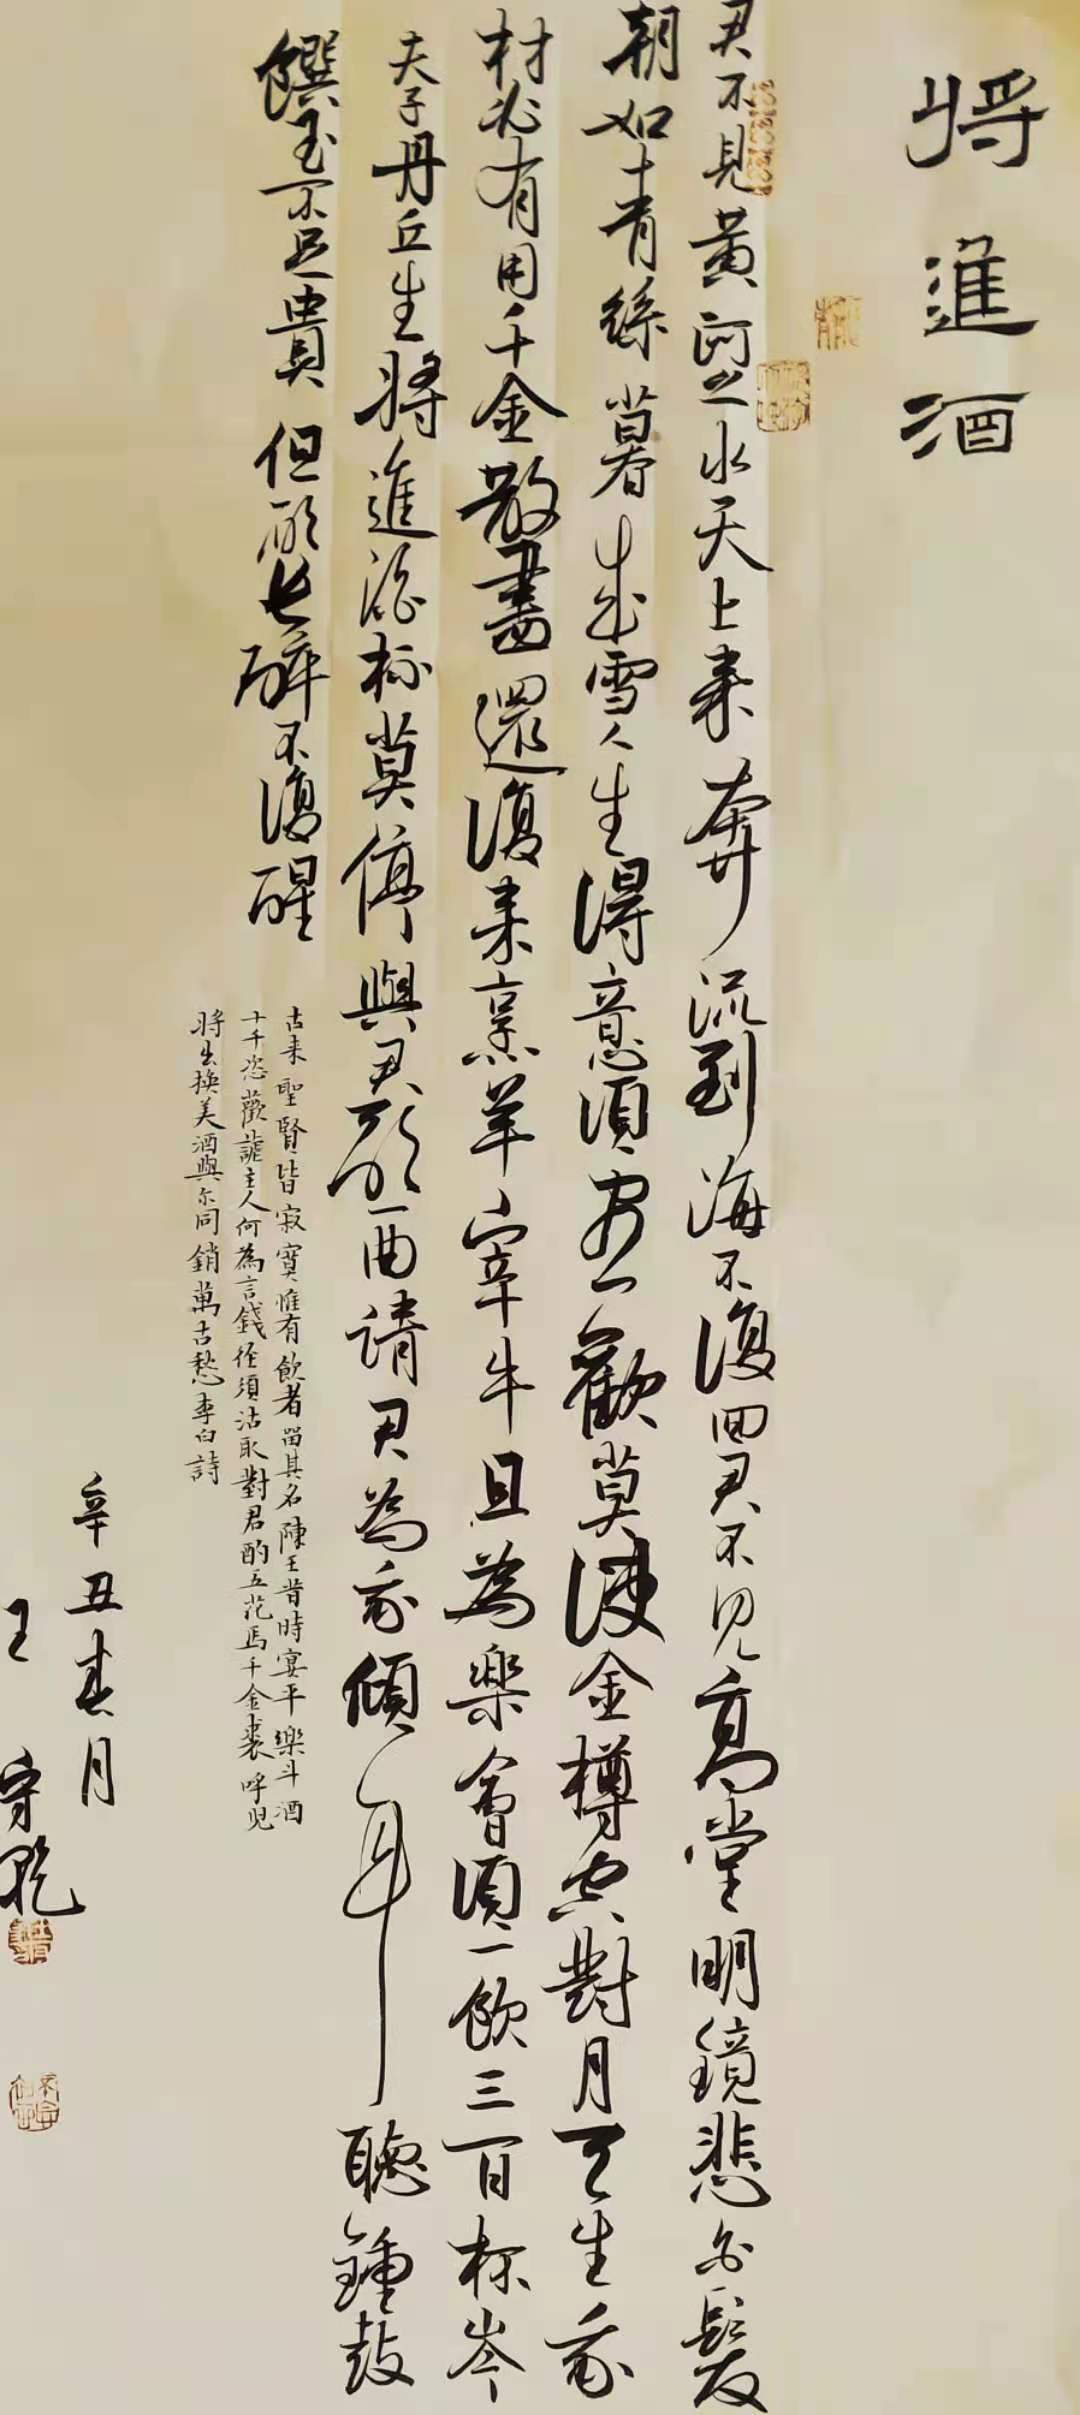 將進酒
君不見黃河之水天上来奔流到海不復回君不見高堂明鏡悲白髮
朝如青絲暮成雪人生得意須盡歡莫使金樽空對月天生我
材必有用千金散盡還復来烹羊宰牛且為樂會須一飲三百杯岑
夫子丹丘生將進酒杯莫停與君歌一曲請君為我傾耳聽鍾鼓
饌玉不足貴但願長醉不復醒
古来聖賢皆寂寞惟有飲者留其名陳王昔時宴平樂斗酒
十千恣歡謔主人何為言錢徑須沽取對君酌五花馬千金裘呼児
將出換美酒與尔同銷萬古愁李白詩
辛丑春月
王守乾